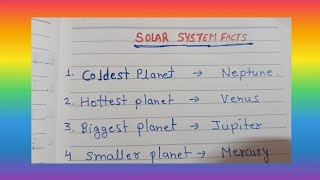 SOLAR SYSTEM FACTS
1. Coldest Planet → Neptune.
2. Hottest planet → Venus
3. Biggest planet → Jupiter
4 Smaller planet → Mercury